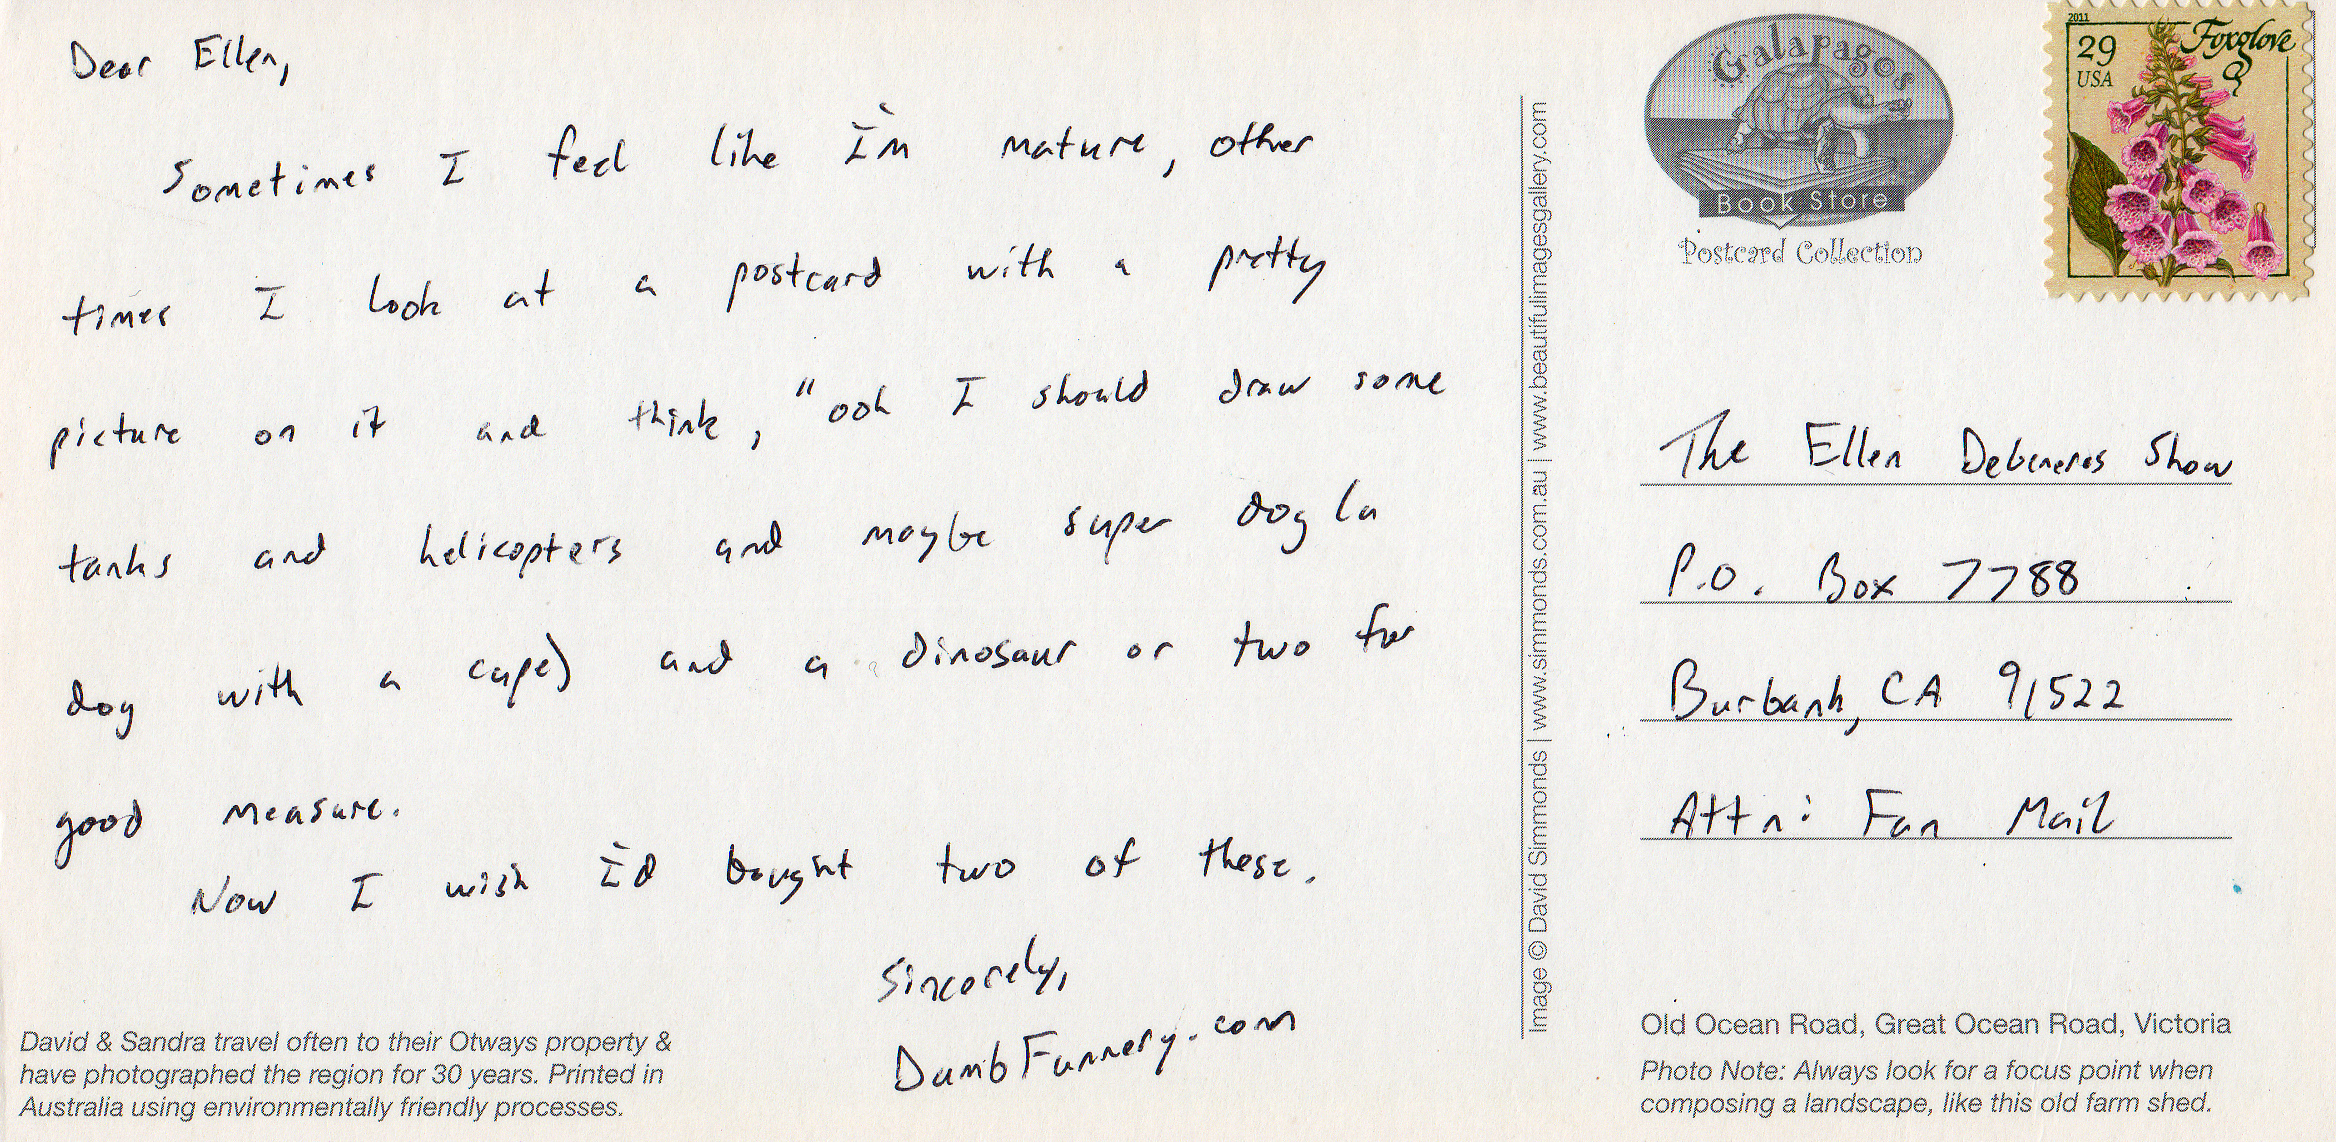 Dear Ellen,
Sometimes I feel like I'm mature, other
times I look at a postcard with a pretty
picture on it and think, "ooh I should draw some
tanks and helicopters and maybe super dog (a
dog with a cape) and a dinosaur or two for
good measure.
Now I wish I'd bought two of these.
Sincerely,
DumbFunnery.com
David & Sandra travel often to their Otways property &
have photographed the region for 30 years. Printed in
Australia using environmentally friendly processes.
Image © David Simmonds | www.simmonds.com.au | www.beautifulimagesgallery.com
Galapagos
Book Store
Postcard Collection
2011
Foxglove
29
USA
The Ellen Degeneres Show
P.O. Box 7788
Burbank, CA 91522
Attn: Fan Mail
Old Ocean Road, Great Ocean Road, Victoria
Photo Note: Always look for a focus point when
composing a landscape, like this old farm shed.